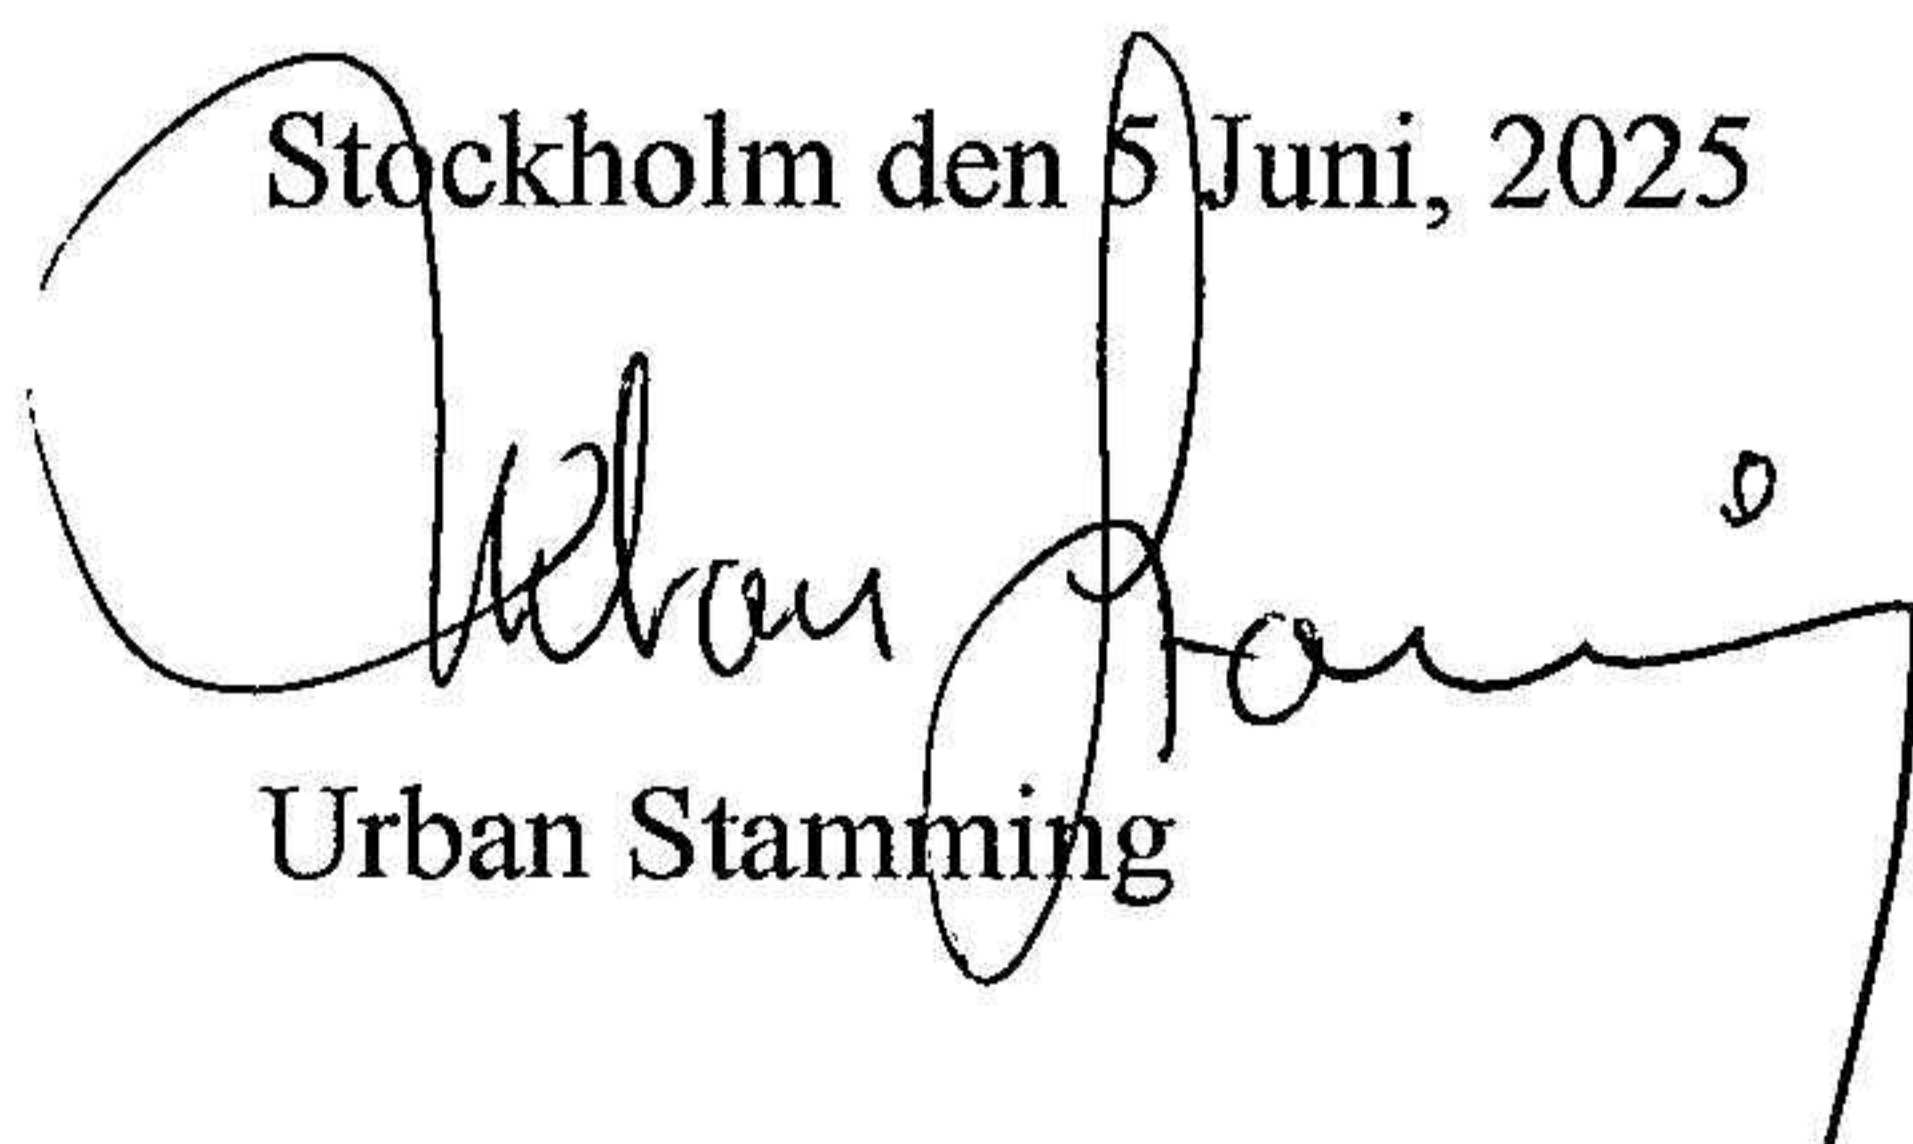 Stockholm den 5 Juni, 2025
Urban Stamming
Urban Stamming